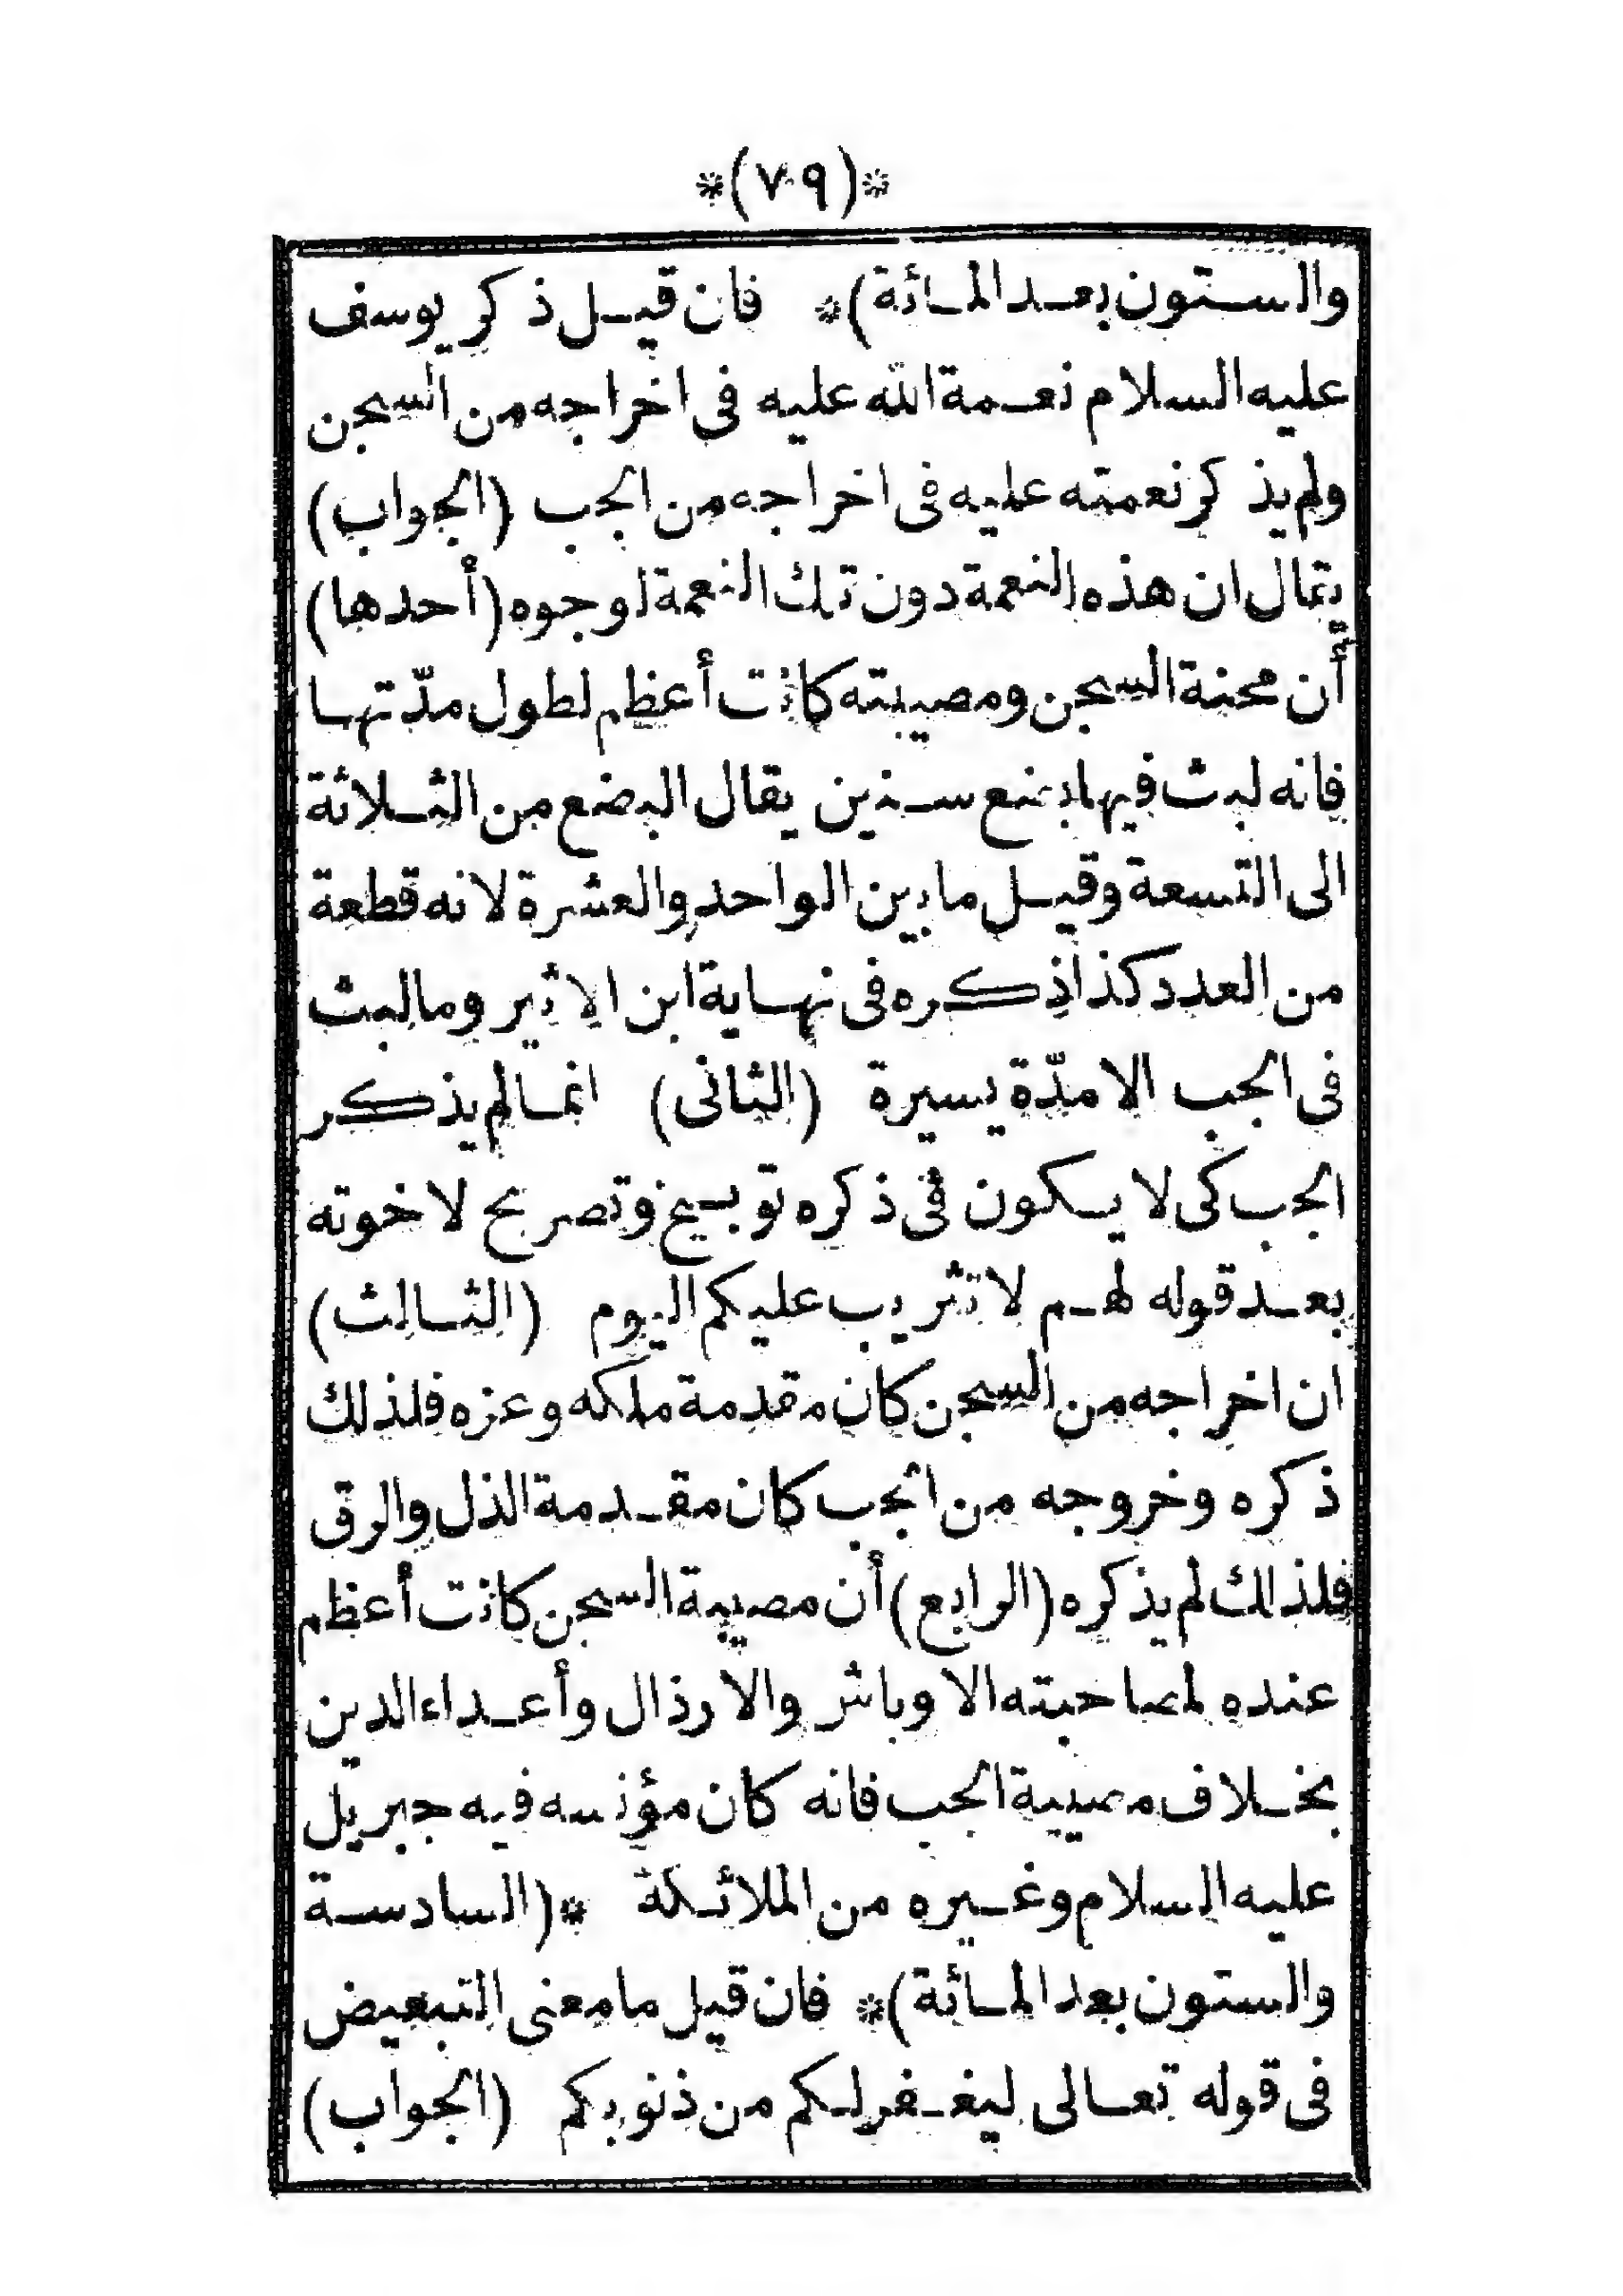 *(٧٩)*
والستون بعد المائة)* فان قيل ذكر يوسف
عليه السلام نعمة الله عليه فى اخراجه من السجن
ولم يذكر نعمته عليه فى اخراجه من الجب (الجواب)
يقال ان هذه النعمة دون تلك النعمة لوجوه (أحدها)
أن محنة السجن ومصيبته كانت أعظم لطول مدّتها
فانه لبث فيها بضع سنين يقال البضع من الثلاثة
الى التسعة وقيل ما بين الواحد والعشرة لانه قطعة
من العدد كذا ذكره فى نهاية ابن الاثير وما لبث
فى الجب الا مدّة يسيرة (الثانى) انما لم يذكر
الجب كى لا يكون فى ذكره توبيخ وتصريح لاخوته
بعد قوله لهم لا تثريب عليكم اليوم (الثالث)
ان اخراجه من السجن كان مقدمة ملكه وعزه فلذلك
ذكره وخروجه من الجب كان مقدمة الذل والرق
فلذلك لم يذكره (الرابع) أن مصيبة السجن كانت أعظم
عنده لمصاحبته الاوباش والارذال وأعداء الدين
بخلاف مصيبة الجب فانه كان مؤنسه فيه جبريل
عليه السلام وغيره من الملائكة *(السادسة
والستون بعد المائة)* فان قيل ما معنى التبعيض
فى قوله تعالى ليغفر لكم من ذنوبكم (الجواب)